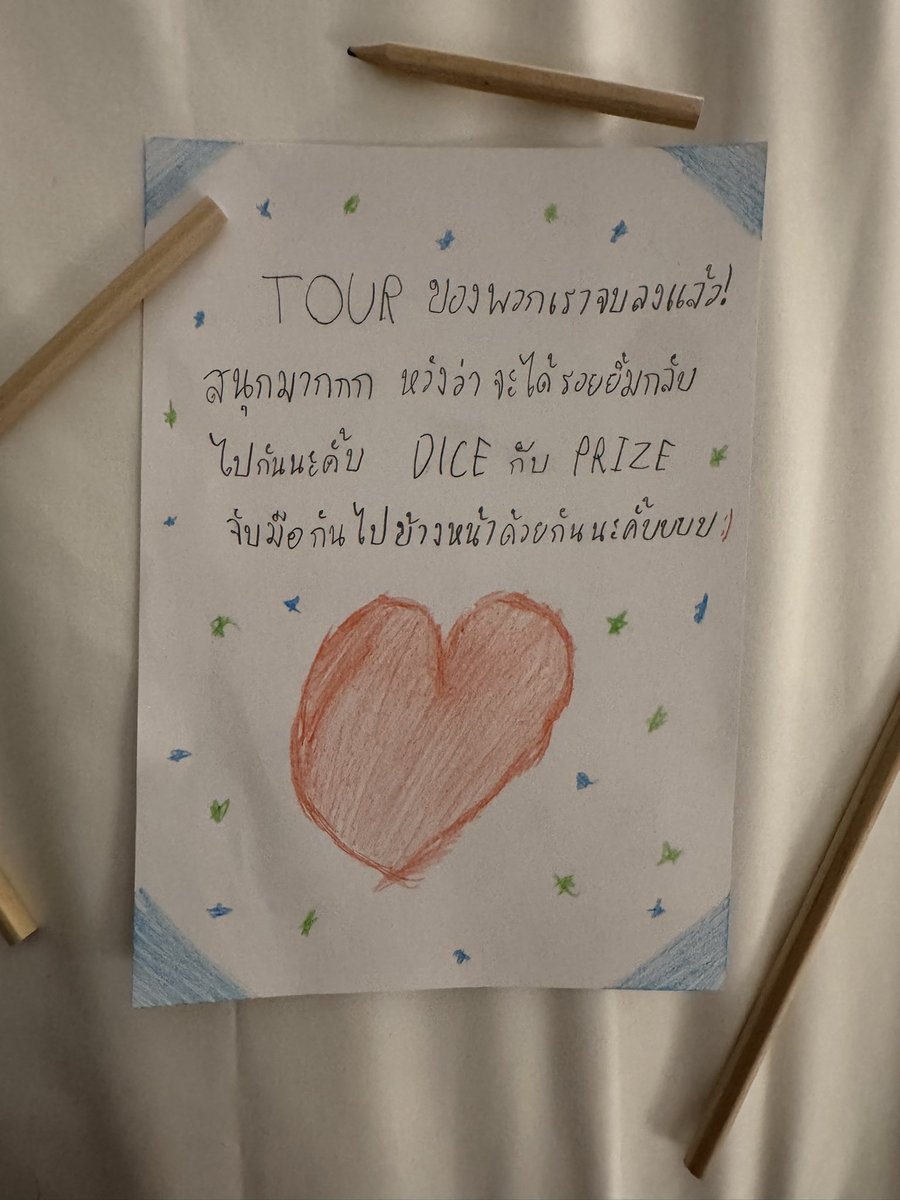 TOUR ของพวกเราจบลงแล้ว!
สนุกมากกก หวังว่า จะได้ รอยยิ้มกลับ
ไปกันนะคั้บ DICE กับ PRIZE
จับมือกันไปข้างหน้าด้วยกันนะคั้บบบบ :)